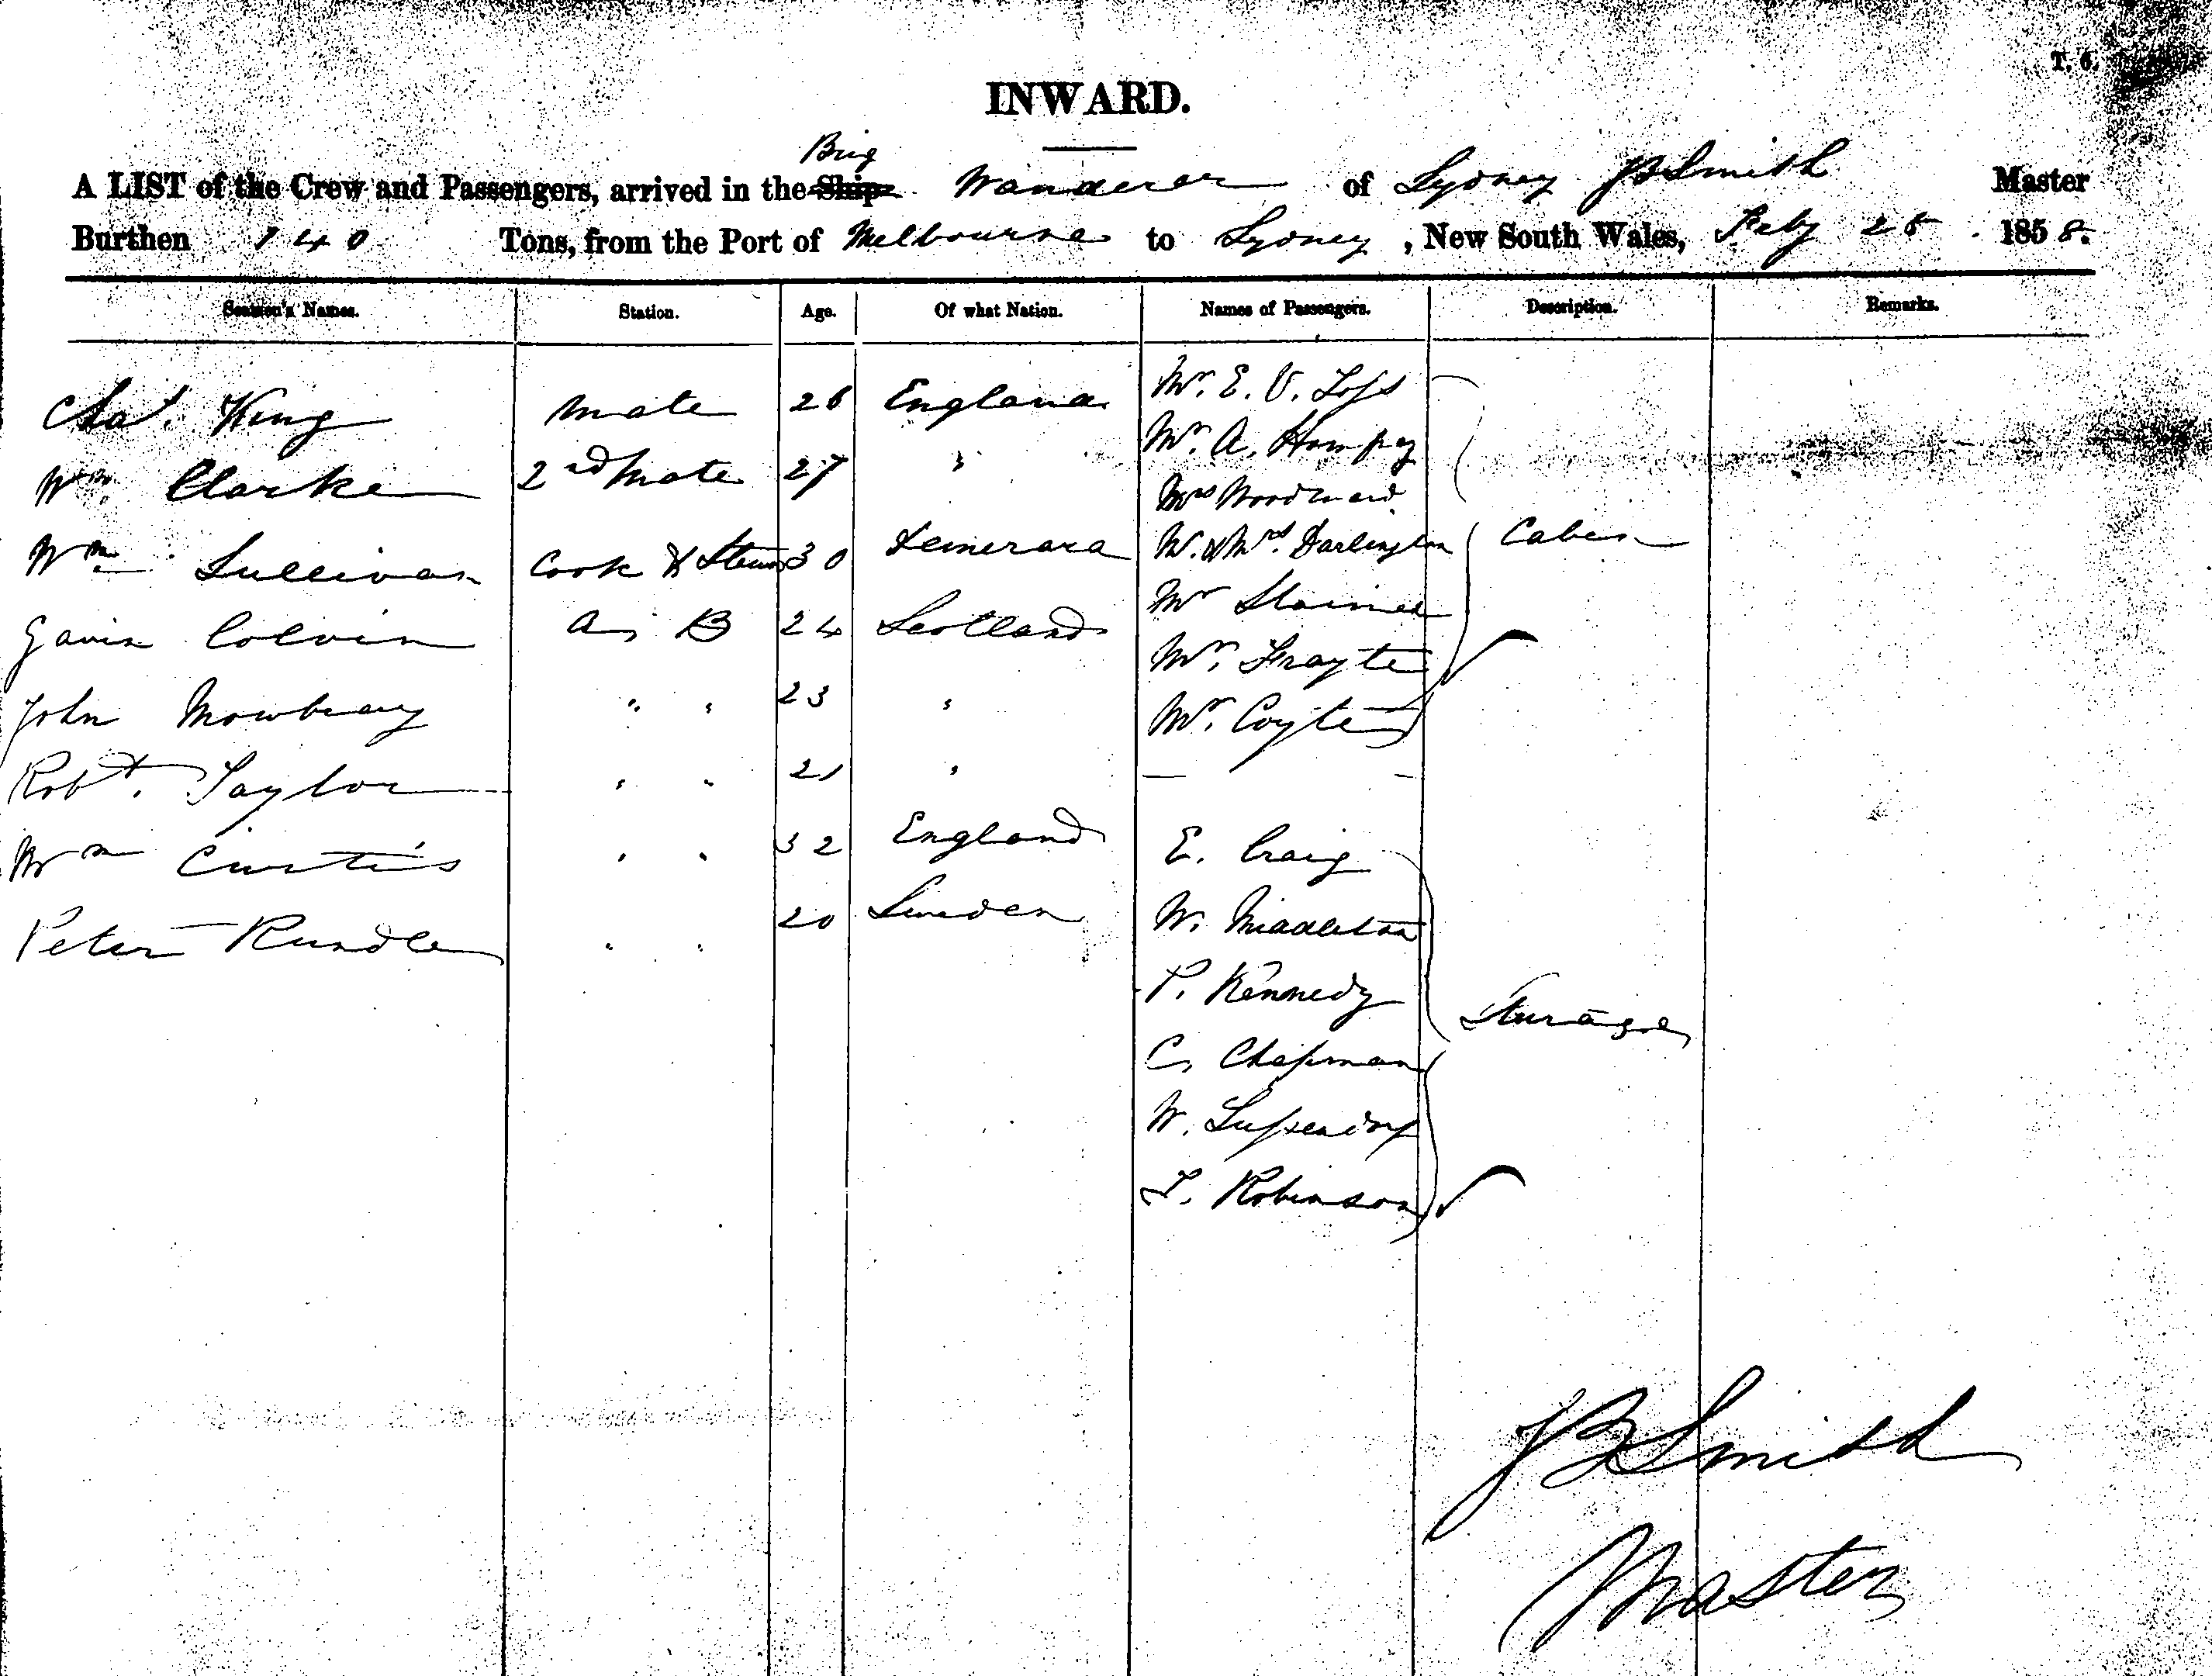 T. 6.
INWARD.
Brig
A LIST of the Crew and Passengers, arrived in the Ship Wanderer of Sydney JB Smith Master
Burthen 140 Tons, from the Port of Melbourne to Sydney, New South Wales, Feby 25. 1858.
Seamen's Names. Station. Age. Of what Nation. Names of Passengers. Description. Remarks.
Chas. King Mate 26 England Mr. E. V.
Mr. A.
Wm. Clarke 2nd Mate 27 " Mrs Woodward
Wm. Sullivan Cook & Stew 30 Demerara M. & Mrs. Darlington Cabin
Mr Staines
Gavin Colvin A, B 24 Scotland Mr.
John Mowbray " " 23 " Mr. Coyte
Robt. Taylor " " 21 " — —
Wm Curtis " " 32 England E. Craig
Peter Rundle " " 20 Sweden W. Middleton
P. Kennedy
Sturage
C, Chapman
W.
T. Robinson
JB Smith
Master